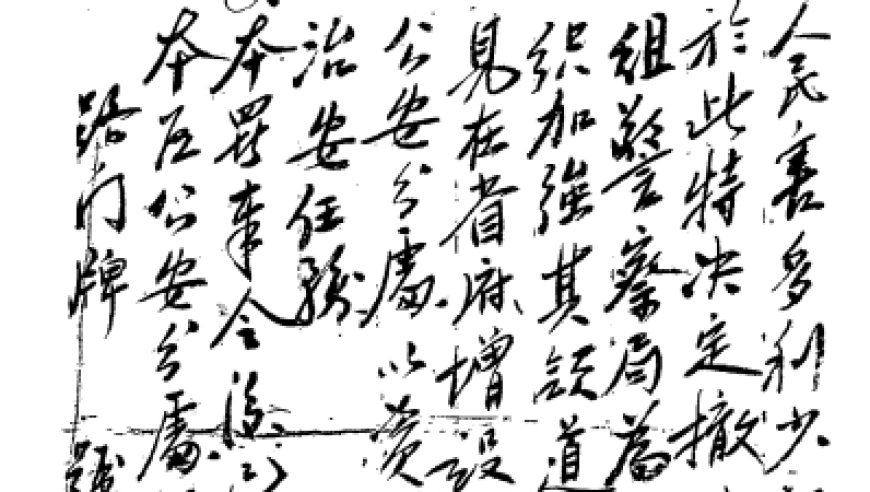 人民害多利少
於此特决定撤
组警察局
织加強其領道
見在省府增設
公安分處以資
治安任務
本署奉令後
本区公安分處
路门牌 號